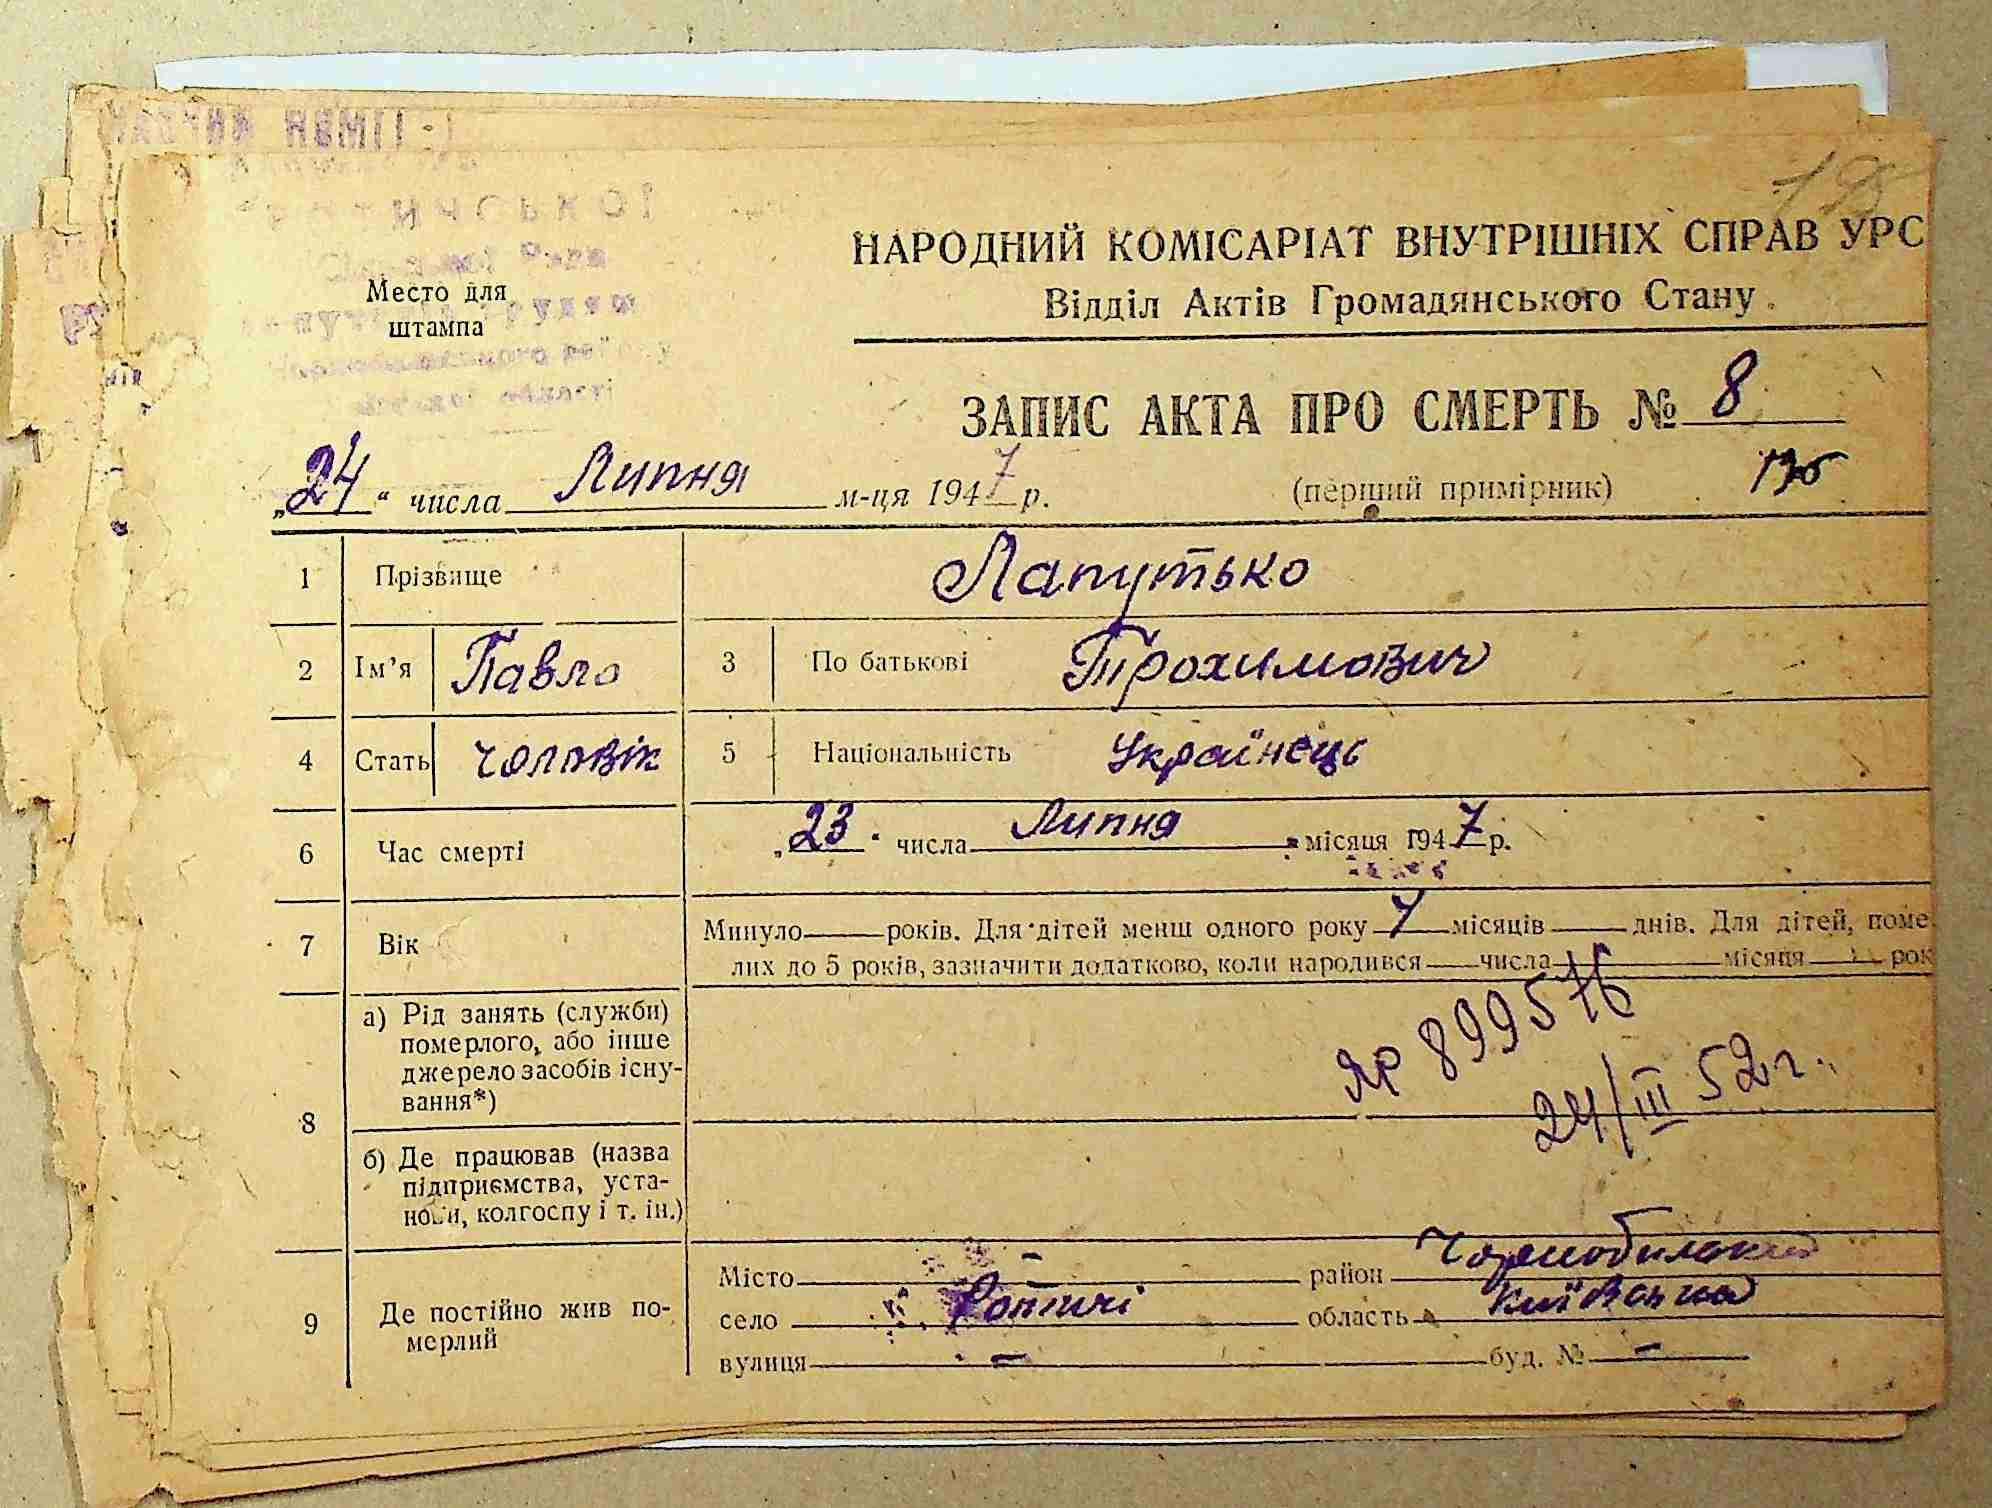 НАРОДНИЙ КОМІСАРІАТ ВНУТРІШНІХ СПРАВ УРС
Відділ Актів Громадянського Стану
Место для
штампа
ЗАПИС АКТА ПРО СМЕРТЬ № 8
„24“ числа Липня м-ця 1947 р. (перший примірник)
1 Прізвище Лапутько
2 Ім'я Павло 3 По батькові Трохимович
4 Стать чоловік 5 Національність Українець
6 Час смерті „23“ числа Липня місяця 1947 р.
7 Вік Минуло років. Для дітей менш одного року 7 місяців днів. Для дітей, поме
лих до 5 років, зазначити додатково, коли народився числа місяця рок
8 а) Рід занять (служби)
померлого, або інше
джерело засобів існу-
вання*)
ЯР 899576
24/III 52 г.
б) Де працював (назва
підприємства, уста-
нови, колгоспу і т. ін.)
9 Де постійно жив по-
мерлий
Місто – район Чорнобильський
село Ротичі область Київська
вулиця – буд. № –